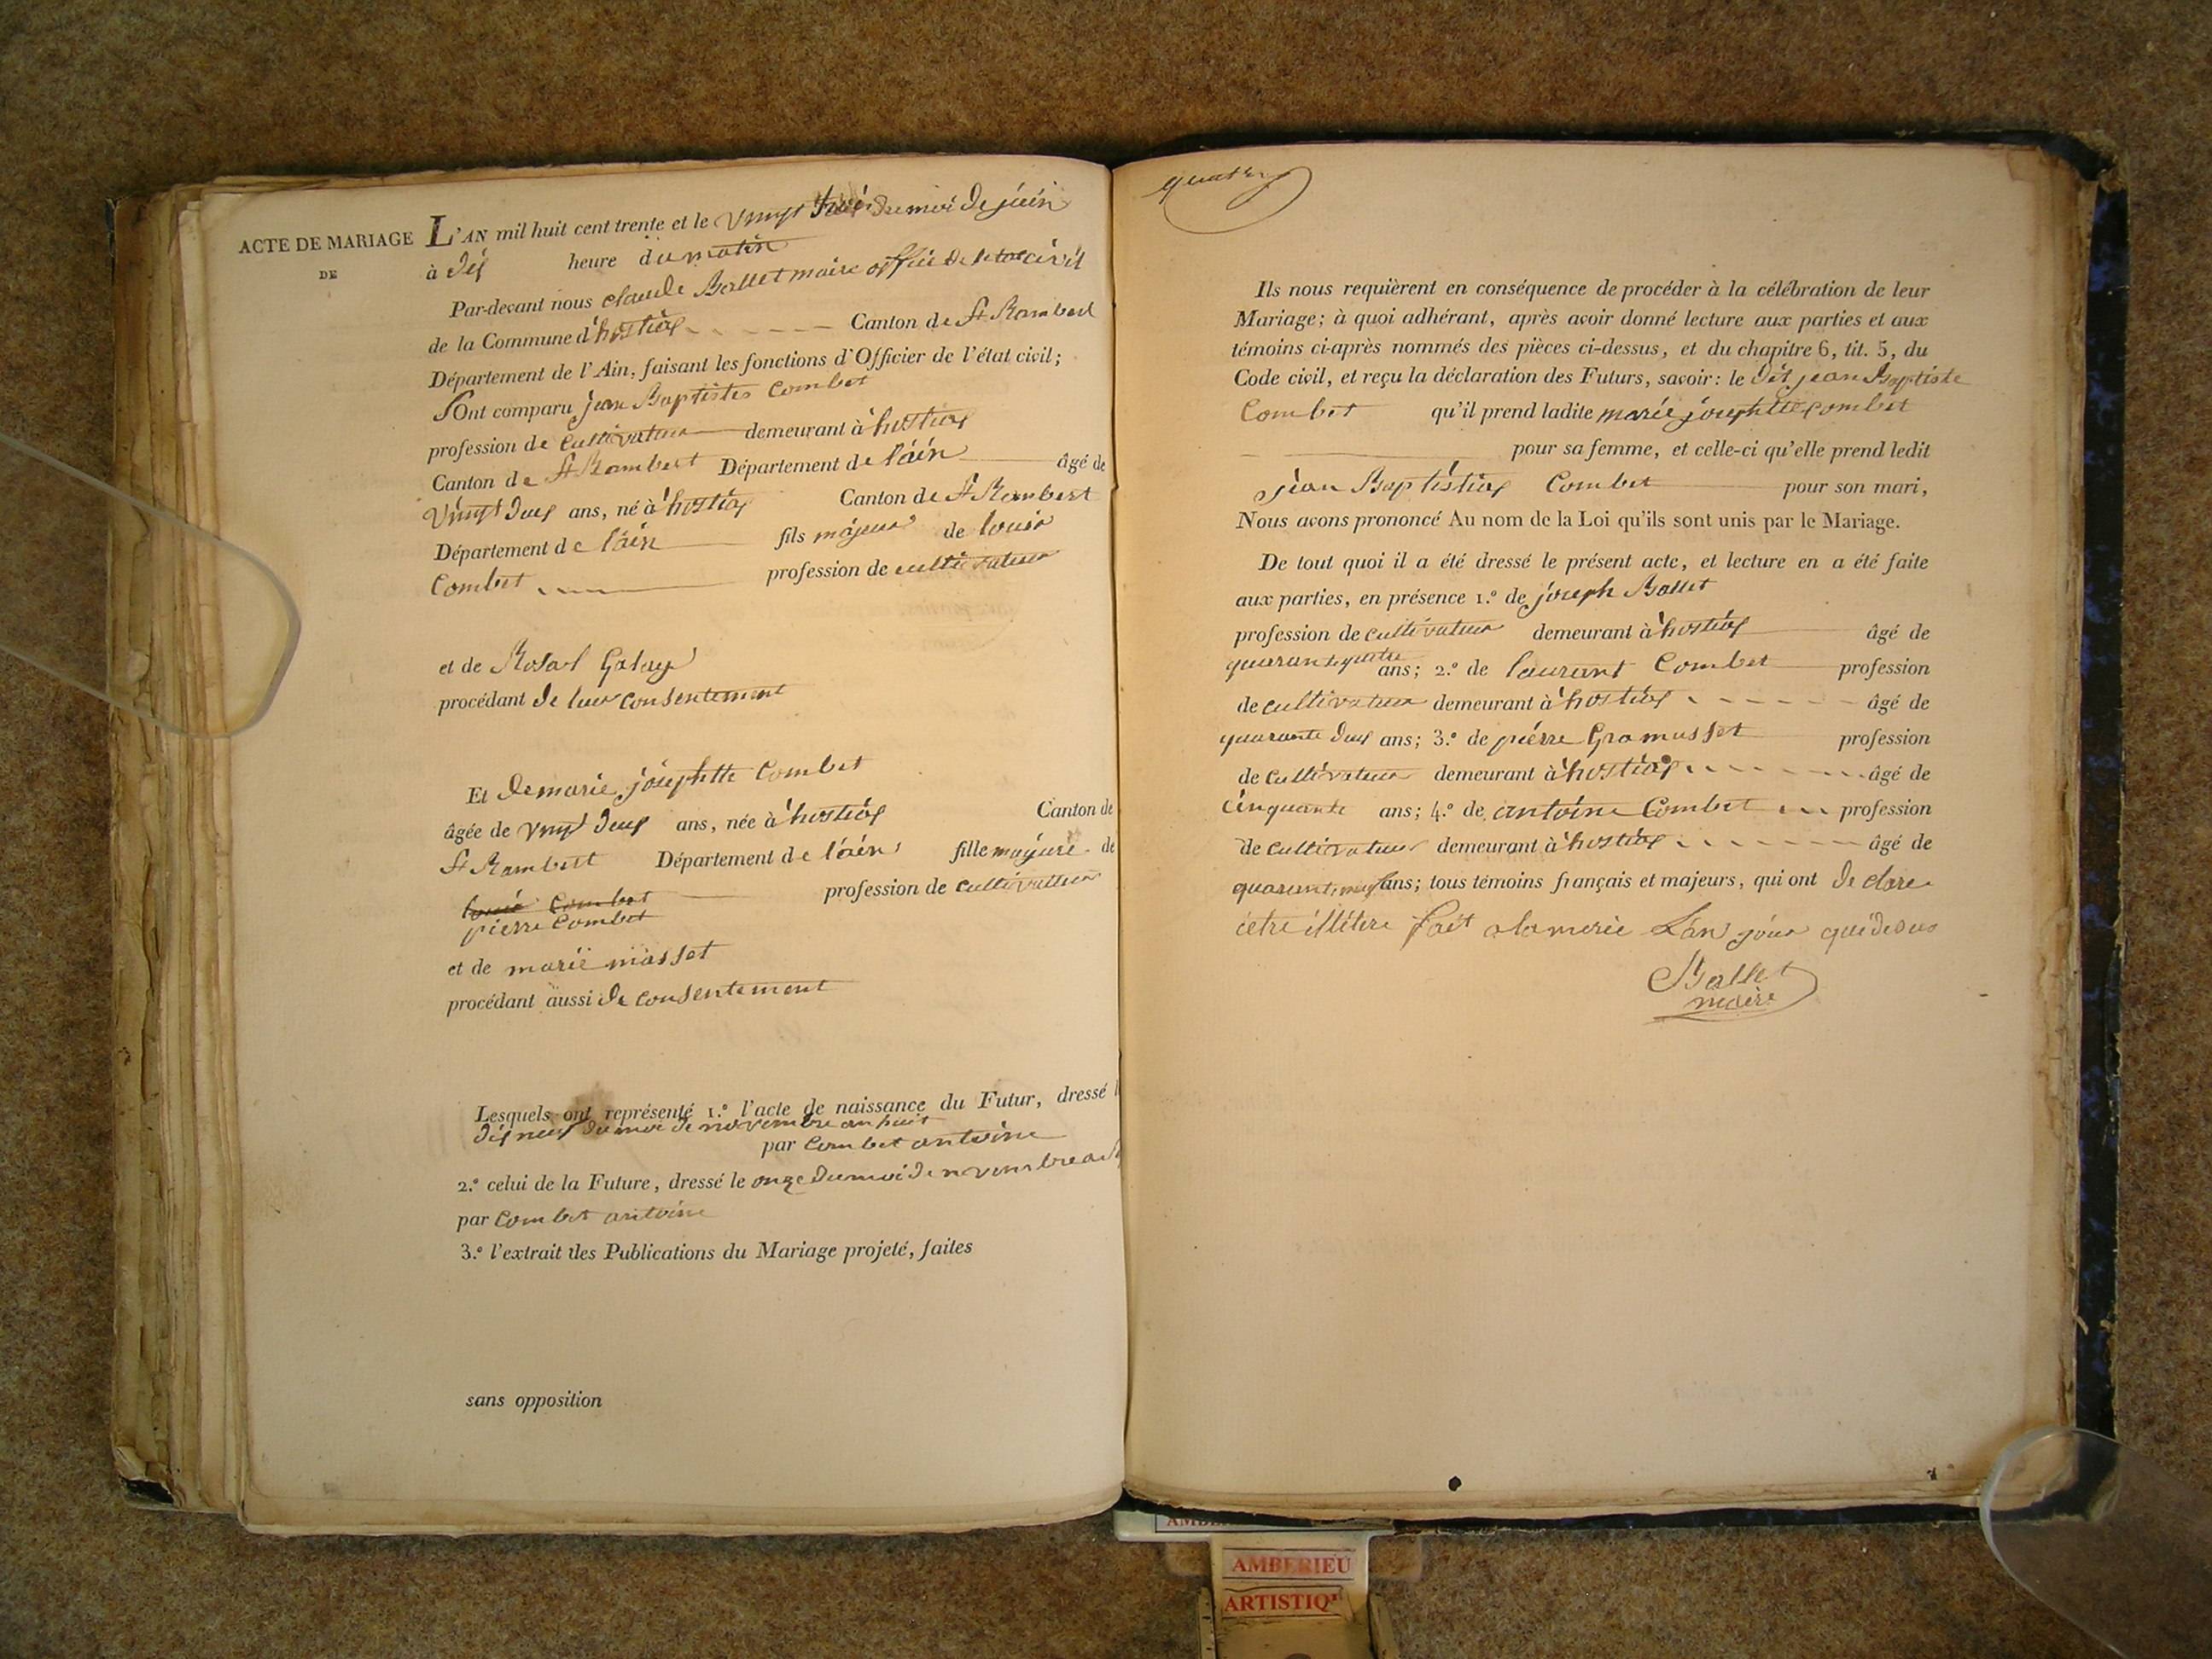 ACTE DE MARIAGE
DE
L'AN mil huit cent trente et le vingt trois du moi de juin
à dix heure du matin
Par-devant nous claude Ballet maire officié de letat civil
de la Commune d'hostias Canton de St Rambert
Département de l'Ain, faisant les fonctions d'Officier de l'état civil;
Sont comparu jean Baptistes Combet
profession de cultivateur demeurant à hostias
Canton de St Rambert Département de l'ain âgé de
vingt deux ans, né à hostias Canton de St Rambert
Département de l'ain fils majeur de louis
Combet profession de cultivateur
et de
procédant de leur consentement
Et de marie josephtte Combet
âgée de vingt deux ans, née à hostias Canton de
St Rambert Département de l'ain fille majure de
louis Combet profession de cultivateur
pierre Combet
et de marie masset
procédant aussi de consentement
Lesquels ont représenté 1.º l'acte de naissance du Futur, dressé
dix neuf du moi de novembre an huit
par Combet antoine
2.º celui de la Future, dressé le onze du moi de novembre
par Combet antoine
3.º l'extrait des Publications du Mariage projeté, faites
sans opposition
Ils nous requièrent en conséquence de procéder à la célébration de leur
Mariage; à quoi adhérant, après avoir donné lecture aux parties et aux
témoins ci-après nommés des pièces ci-dessus, et du chapitre 6, tit. 5, du
Code civil, et reçu la déclaration des Futurs, savoir: le dit jean Baptiste
Combet qu'il prend ladite marie josephtte Combet
pour sa femme, et celle-ci qu'elle prend ledit
jean Baptistias Combet pour son mari,
Nous avons prononcé Au nom de la Loi qu'ils sont unis par le Mariage.
De tout quoi il a été dressé le présent acte, et lecture en a été faite
aux parties, en présence 1.º de joseph Ballet
profession de cultivateur demeurant à hostias âgé de
quarante quatre ans; 2.º de laurant Combet profession
de cultivateur demeurant à hostias âgé de
quarante deux ans; 3.º de pierre Gramusset profession
de cultivateur demeurant à hostias âgé de
cinquante ans; 4.º de antoine Combet profession
de cultivateur demeurant à hostias âgé de
quarante neuf ans; tous témoins français et majeurs, qui ont de clare
cetre illétere fait a la merie Lan jour que desus
Ballet
maire
AMBERIEU
ARTISTIQ